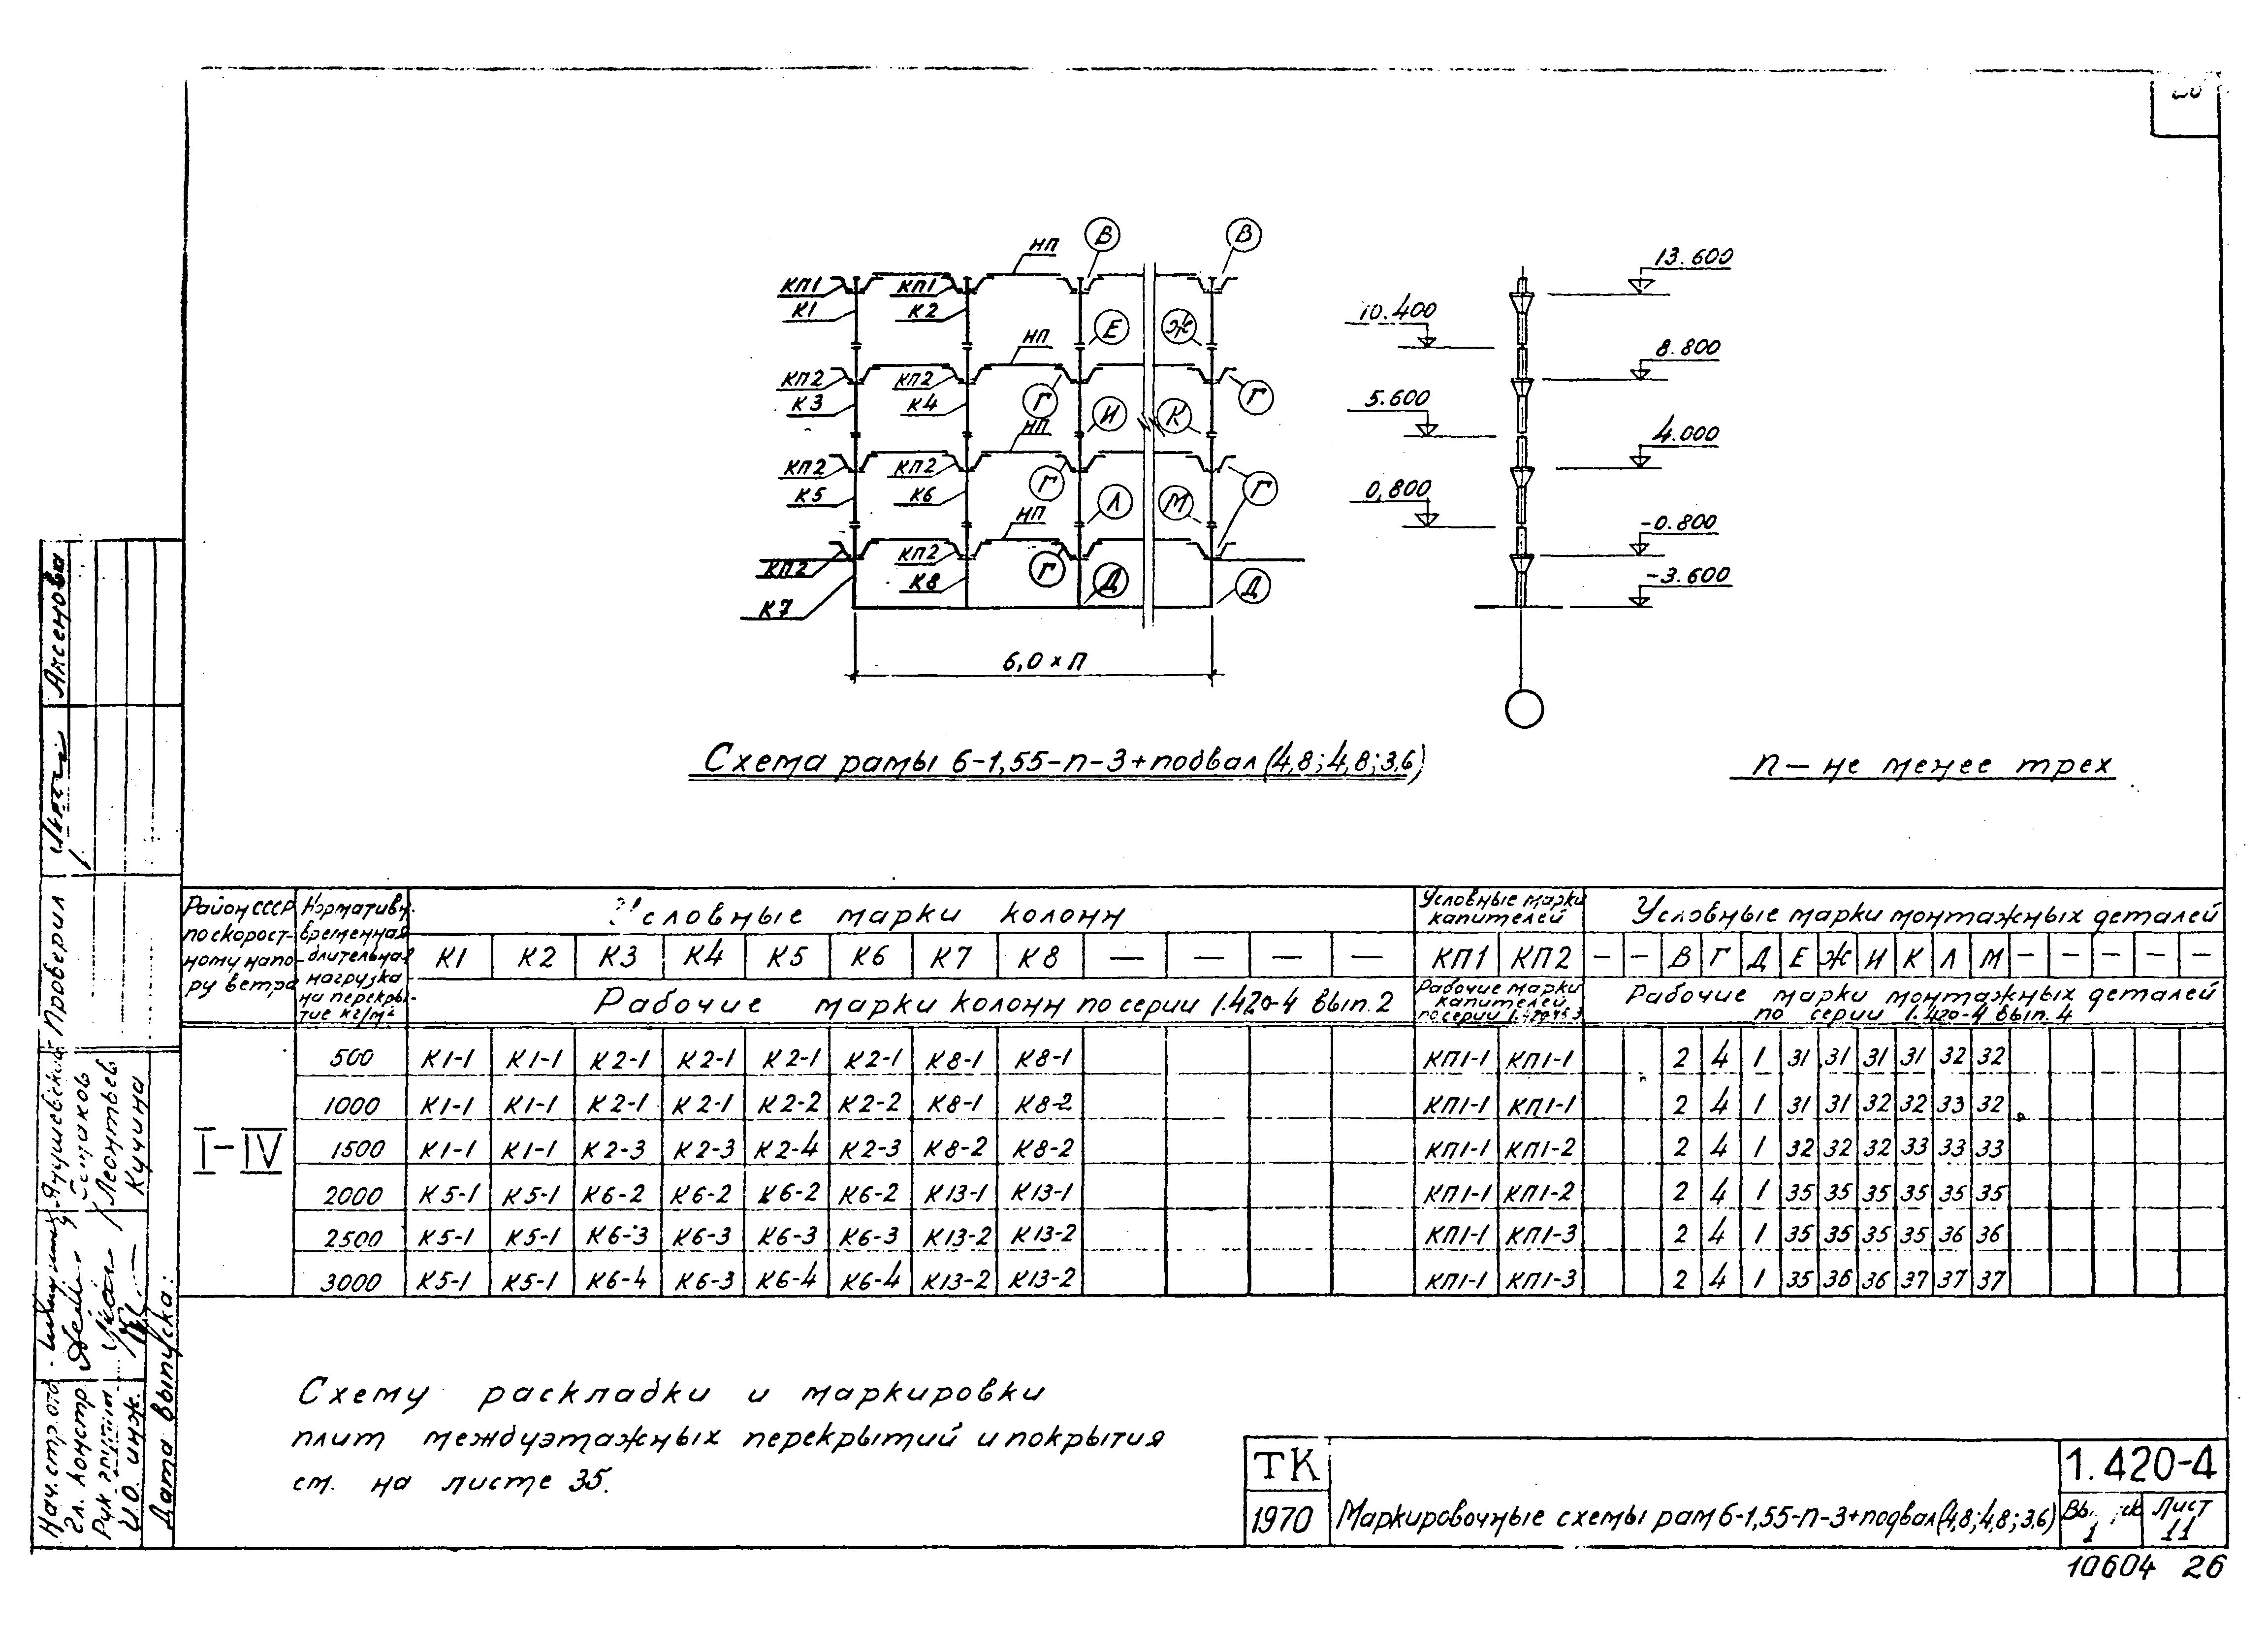 В В
НП
КП1 КП1
К1 К2
Е Ж
НП
КП2 КП2
К3 К4
Г Г
И К
НП
КП2 КП2
К5 К6
Г Г
Л М
НП
КП2 КП2
К7 К8
Г Д Д
6,0 х П
13.600
10.400
8.800
5.600
4.000
0,800
-0.800
-3.600
Схема рамы 6-1,55-п-3+подвал(4,8;4,8;3,6)
п — не менее трех
Район СССР по скорост- ному напо- ру ветра
Нормативн. временная длительная нагрузка на перекры- тие кг/м²
Условные марки колонн
Условные марки капителей
Условные марки монтажных деталей
К1 К2 К3 К4 К5 К6 К7 К8 — — — —
КП1 КП2
— — В Г Д Е Ж И К Л М — — — — —
Рабочие марки колонн по серии 1.420-4 вып. 2
Рабочие марки капителей по серии
Рабочие марки монтажных деталей
по серии 1.420-4 вып. 4
I-IV
500 К1-1 К1-1 К2-1 К2-1 К2-1 К2-1 К8-1 К8-1 КП1-1 КП1-1 2 4 1 31 31 31 31 32 32
1000 К1-1 К1-1 К2-1 К2-1 К2-2 К2-2 К8-1 К8-2 КП1-1 КП1-1 2 4 1 31 31 32 32 33 32
1500 К1-1 К1-1 К2-3 К2-3 К2-4 К2-3 К8-2 К8-2 КП1-1 КП1-2 2 4 1 32 32 32 33 33 33
2000 К5-1 К5-1 К6-2 К6-2 К6-2 К6-2 К13-1 К13-1 КП1-1 КП1-2 2 4 1 35 35 35 35 35 35
2500 К5-1 К5-1 К6-3 К6-3 К6-3 К6-3 К13-2 К13-2 КП1-1 КП1-3 2 4 1 35 35 35 35 36 36
3000 К5-1 К5-1 К6-4 К6-3 К6-4 К6-4 К13-2 К13-2 КП1-1 КП1-3 2 4 1 35 36 36 37 37 37
Схему раскладки и маркировки
плит междуэтажных перекрытий и покрытия
см. на листе 35.
ТК
1970
Маркировочные схемы рам 6-1,55-п-3+подвал(4,8;4,8;3,6)
1.420-4
1
Лист
11
10604 26
Нач. стр. отд.
Гл. констр
Рук.
И.О. инж.
Дата выпуска:
Леонтьев
Кучина
Проверил
Аксенова